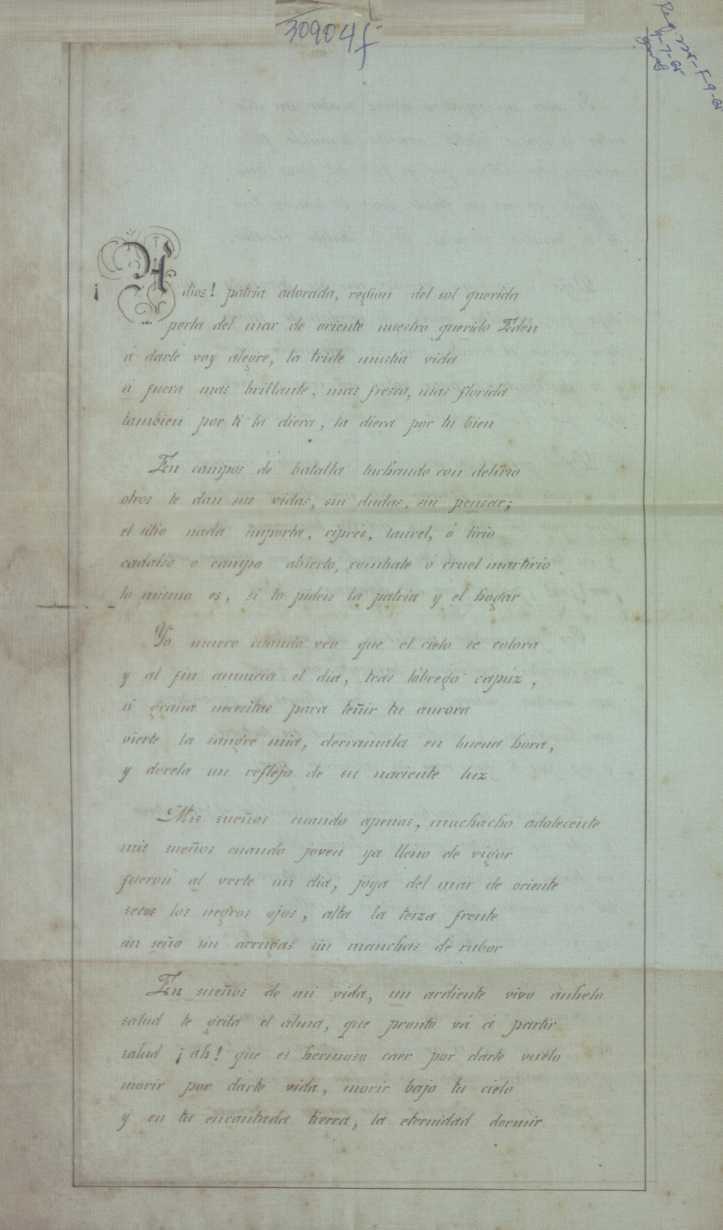 30904f
¡Adios! patria adorada, region del sol querida
perla del mar de oriente nuestro querido Edén
á darte voy alegre, la triste mustia vida
á fuera mas brillante, mas fresca, mas florida
tambien por ti la diera, la diera por tu bien
En campos de batalla luchando con delirio
otros te dan sus vidas, sin dudas, sin pensar;
el sitio nada importa, cipres, laurel, ó lirio
cadalso o campo abierto, combate ó cruel martirio
lo mismo es, si lo piden la patria y el hogar
Yo muero cuando veo que el cielo se colora
y al fin anuncia el dia, tras lóbrego capúz,
si grana necesitas para teñir tu aurora
vierte la sangre mia, derramala en buena hora,
y dorela un reflejo de su naciente luz
Mis sueños cuando apenas, muchacho adolecente
mis sueños cuando joven ya lleno de vigor
fueron al verte un dia, joya del mar de oriente
secos los negros ojos, alta la tersa frente
sin seño sin arrugas sin manchas de rubor
En sueños de mi vida, un ardiente vivo anhelo
salud te grita el alma, que pronto vá á partir
salud ¡ah! que es hermoso caer por darte vuelo
morir por darte vida, morir bajo tu cielo
y en tu encantada tierra, la eternidad dormir